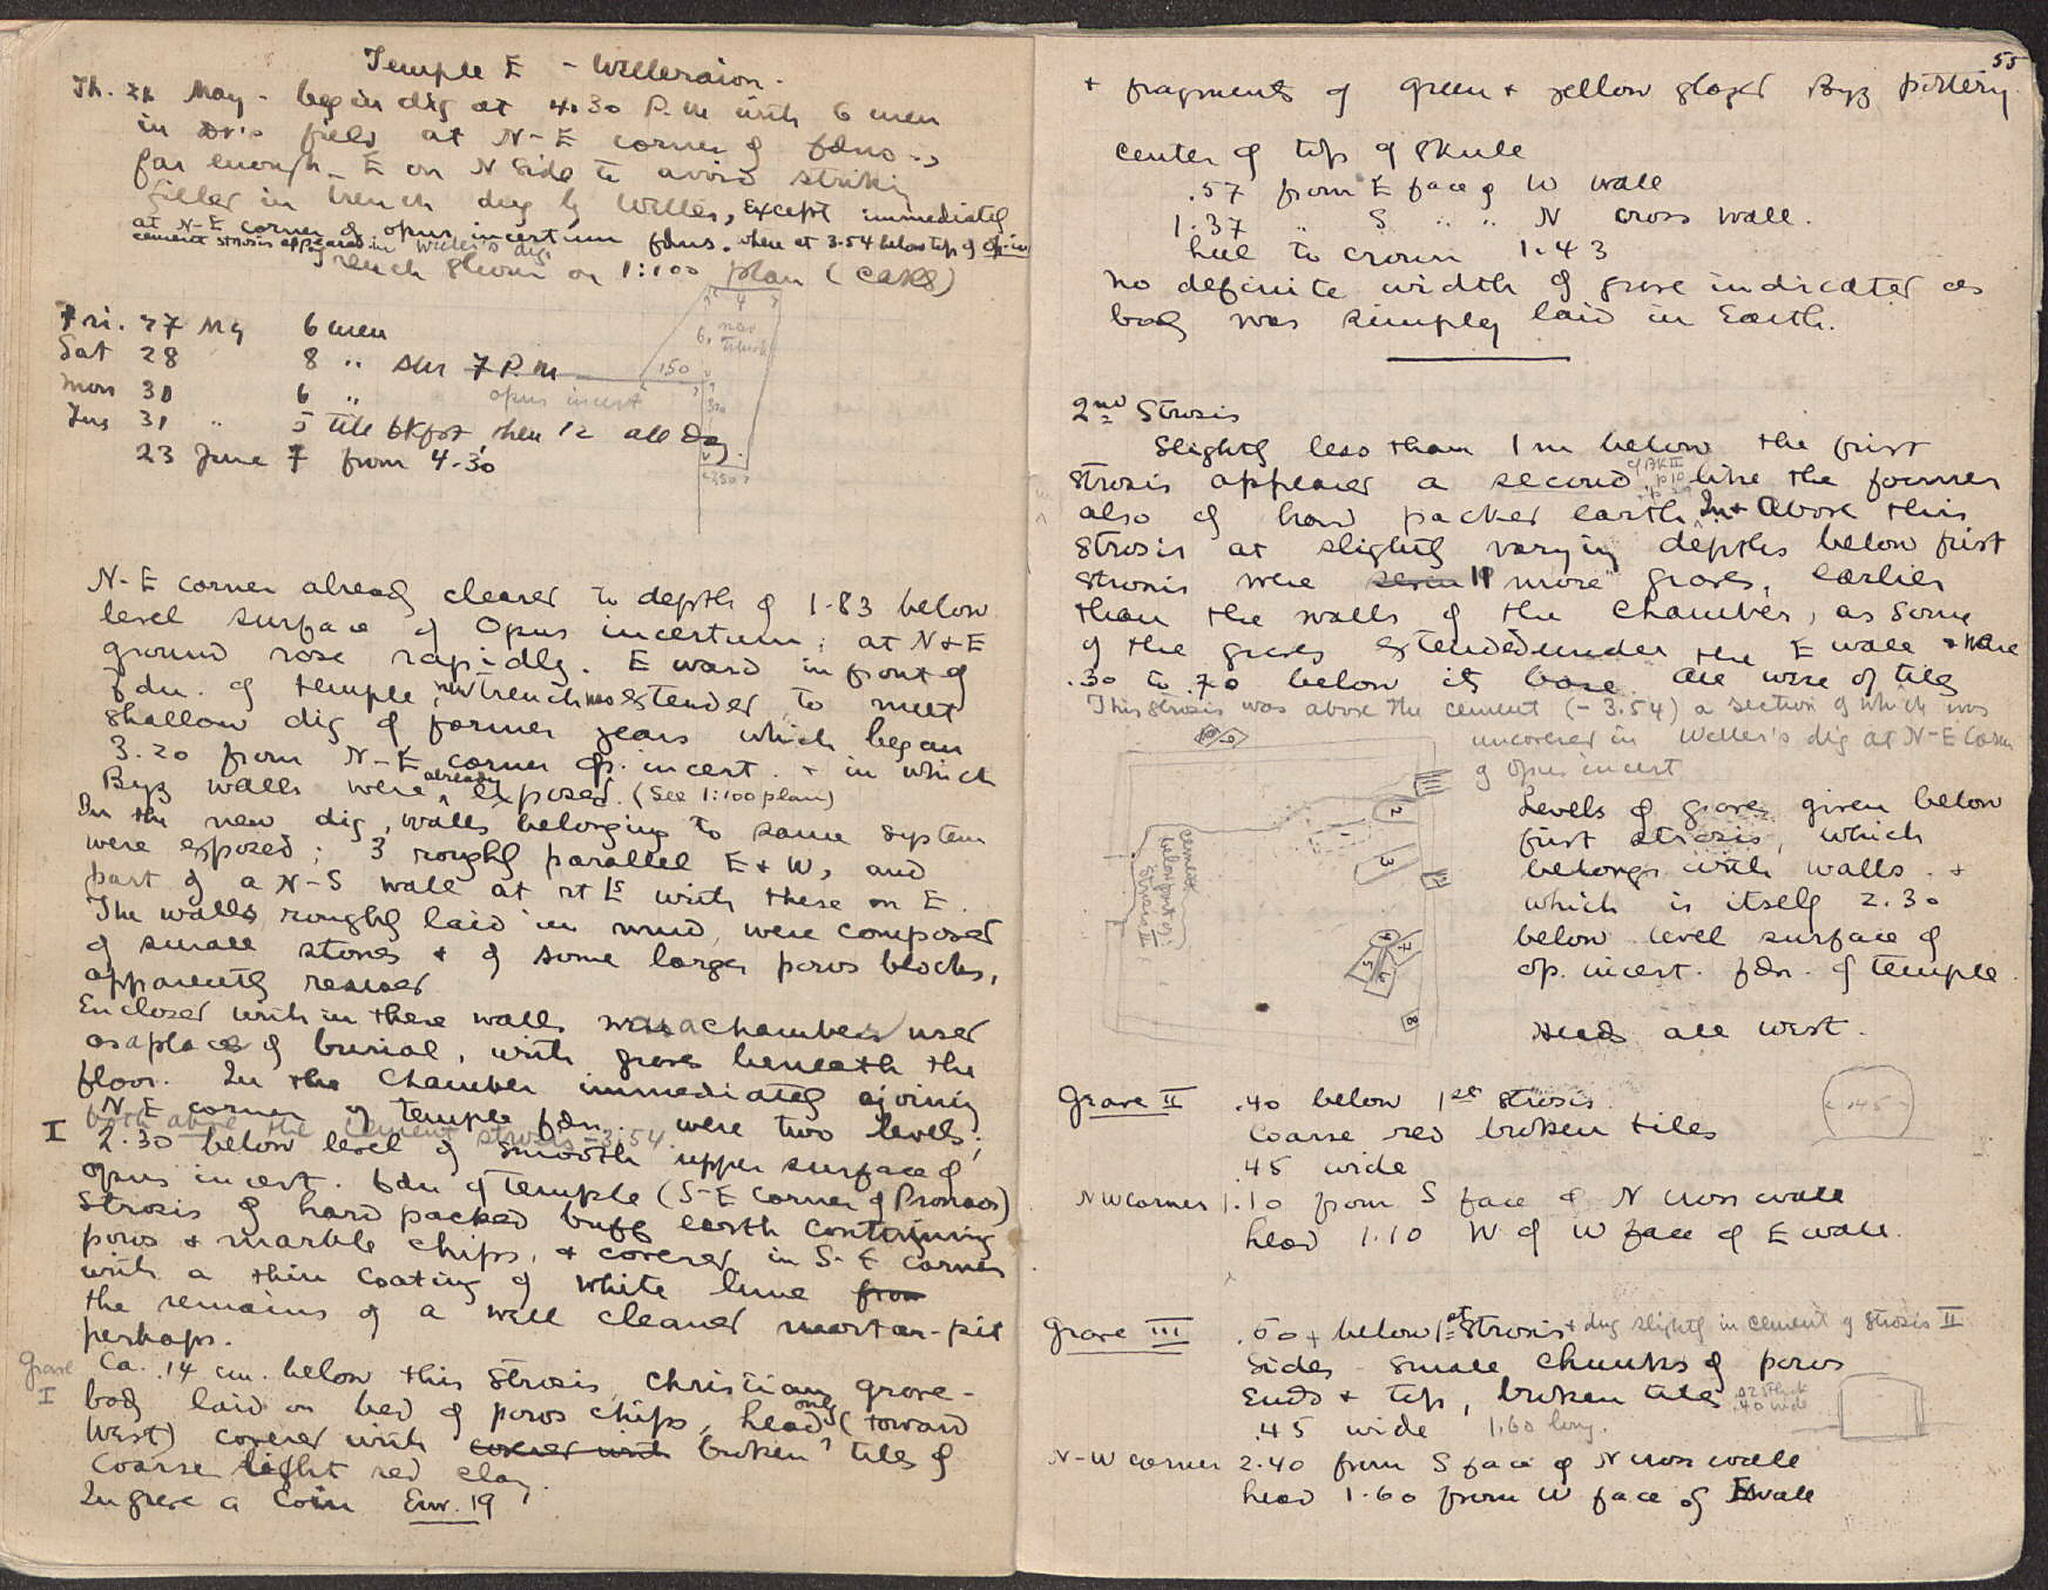 Temple E - Willeraion.
Th. 26 May - begin dig at 4.30 P.M with 6 men
in Dr's field at N-E corner of fdns
far enough E on N side to avoid striking
filled in trench dug by Willer, except immediately
at N-E corner of opus incertum fdns. where at 3.54 below top of op. in
cement strosis appeared in Willer's dig.
Trench shown on 1:100 plan (CaKS)
4
6.
new
trench
1.50
opus incert
3.20
2.50
Fri. 27 My 6 men
Sat 28 8 " sur 7 P.M
Mon 30 6 "
Tus 31 " 5 till bkfst, then 12 all day.
23 June 7 from 4.30
N-E corner already cleared to depth of 1.83 below
level surface of Opus incertum; at N & E
ground rose rapidly. E ward in front of
fdn. of temple, new trench was extended to meet
shallow dig of former years which began
3.20 from N-E corner op. incert. + in which
Byz walls were already exposed. (See 1:100 plan)
In the new dig, walls belonging to same system
were exposed; 3 roughly parallel E & W, and
part of a N-S wall at rt Ls with these on E.
The walls roughly laid in mud, were composed
of small stones & of some larger poros blocks,
apparently reused
Enclosed within these walls was a chamber used
as a place of burial, with graves beneath the
floor. In the chamber immediately ajoining
N-E corner of temple fdn. were two levels;
both above the cement strosis -3.54.
I 2.30 below level of smooth upper surface of
opus incert. fdn of temple (S-E corner of Pronaos)
strosis of hard packed buff earth containing
poros & marble chips, & covered in S-E corner
with a thin coating of white lime from
the remains of a well cleaned mortar-pit
perhaps.
Grave I Ca. .14 cm. below this strosis, Christian grave -
body laid on bed of poros chips, head only (toward
West) covered with covered with broken tiles of
coarse light red clay.
In grave a Coin Env. 19
55
+ fragments of green & yellow glazed Byz pottery.
center of top of skull
.57 from E face of W wall
1.37 " S " " N cross wall.
heel to crown 1.43
no definite width of grave indicated as
body was simply laid in Earth.
2nd Strosis
Slightly less than 1 m below the first
strosis appeared a second, like the former
cf BK II
p 10
also of hard packed earth. In & above this
strosis at slightly varying depths below first
strosis were seven 11 more graves, earlier
than the walls of the chamber, as some
of the graves extended under the E wall & were
.30 to .70 below its base. All were of tiles
This strosis was above the cement (-3.54) a section of which was
uncovered in Weller's dig at N-E Corn
of opus incert
cement
below part of
Strosis II
1
2
3
4
5
6
7
8
9
Levels of graves given below
first strosis, which
belongs with walls. +
which is itself 2.30
below level surface of
op. incert. fdn. of temple.
Heads all west.
Grave II .40 below 1st strosis
Coarse red broken tiles
.45 wide
.45
NW corner 1.10 from S face of N cross wall
head 1.10 W of W face of E wall.
Grave III .60+ below 1st Strosis + dug slightly in cement of Strosis II
Sides - small chunks of poros
Ends & top, broken tiles .02 thick
.40 wide
.45 wide 1.60 long.
N-W corner 2.40 from S face of N cross wall
head 1.60 from W face of E wall